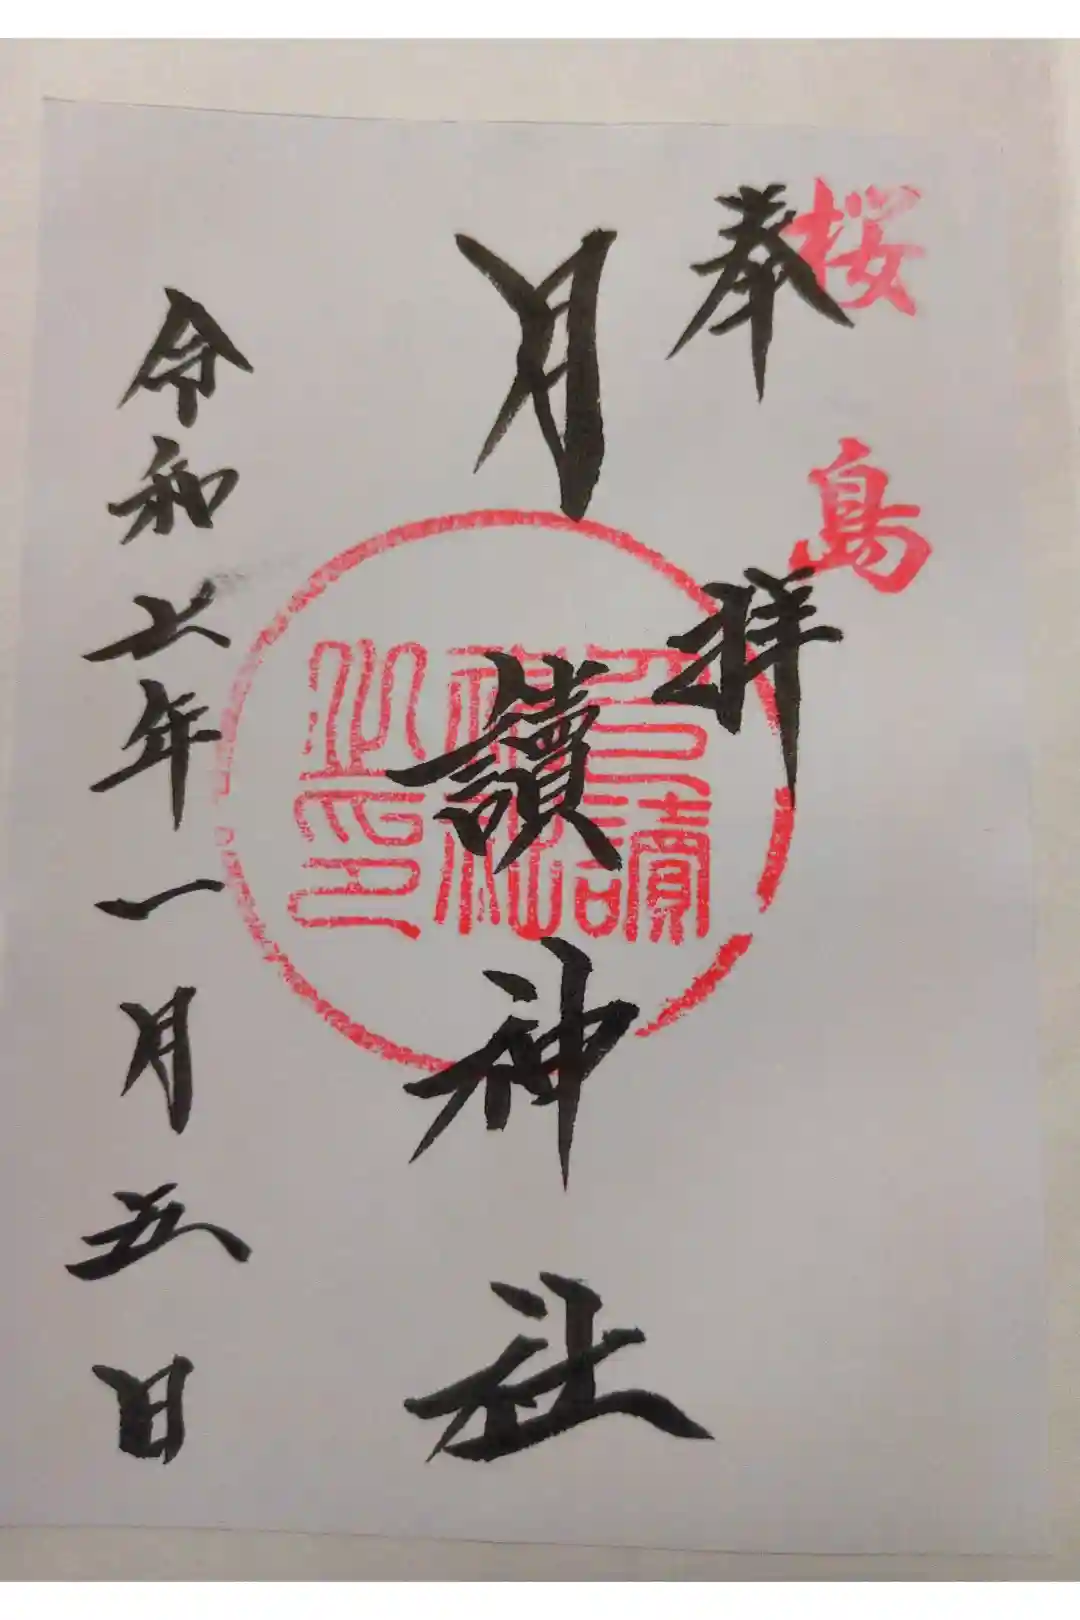 桜島
奉拝
月讀神社
月讀神社之印
令和七年一月五日